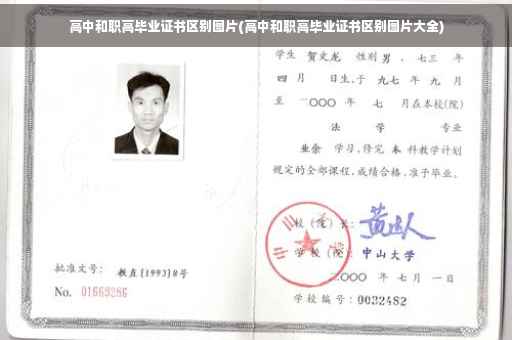 高中和职高毕业证书区别图片(高中和职高毕业证书区别图片大全)
学生 贺文龙 性别 男 、七三 年
四 月 日生,于 九七 年 九 月
至 二〇〇〇 年 七 月在本校(院)
法 学 专业
业余 学习,修完 本 科教学计划
规定的全部课程,成绩合格,准予毕业。
校(院)长:
学校(院): 中山大学
二〇〇〇 年 七 月 一 日
学校编号:0032482
批准文号: 教直[1993]8号
No. 01669286